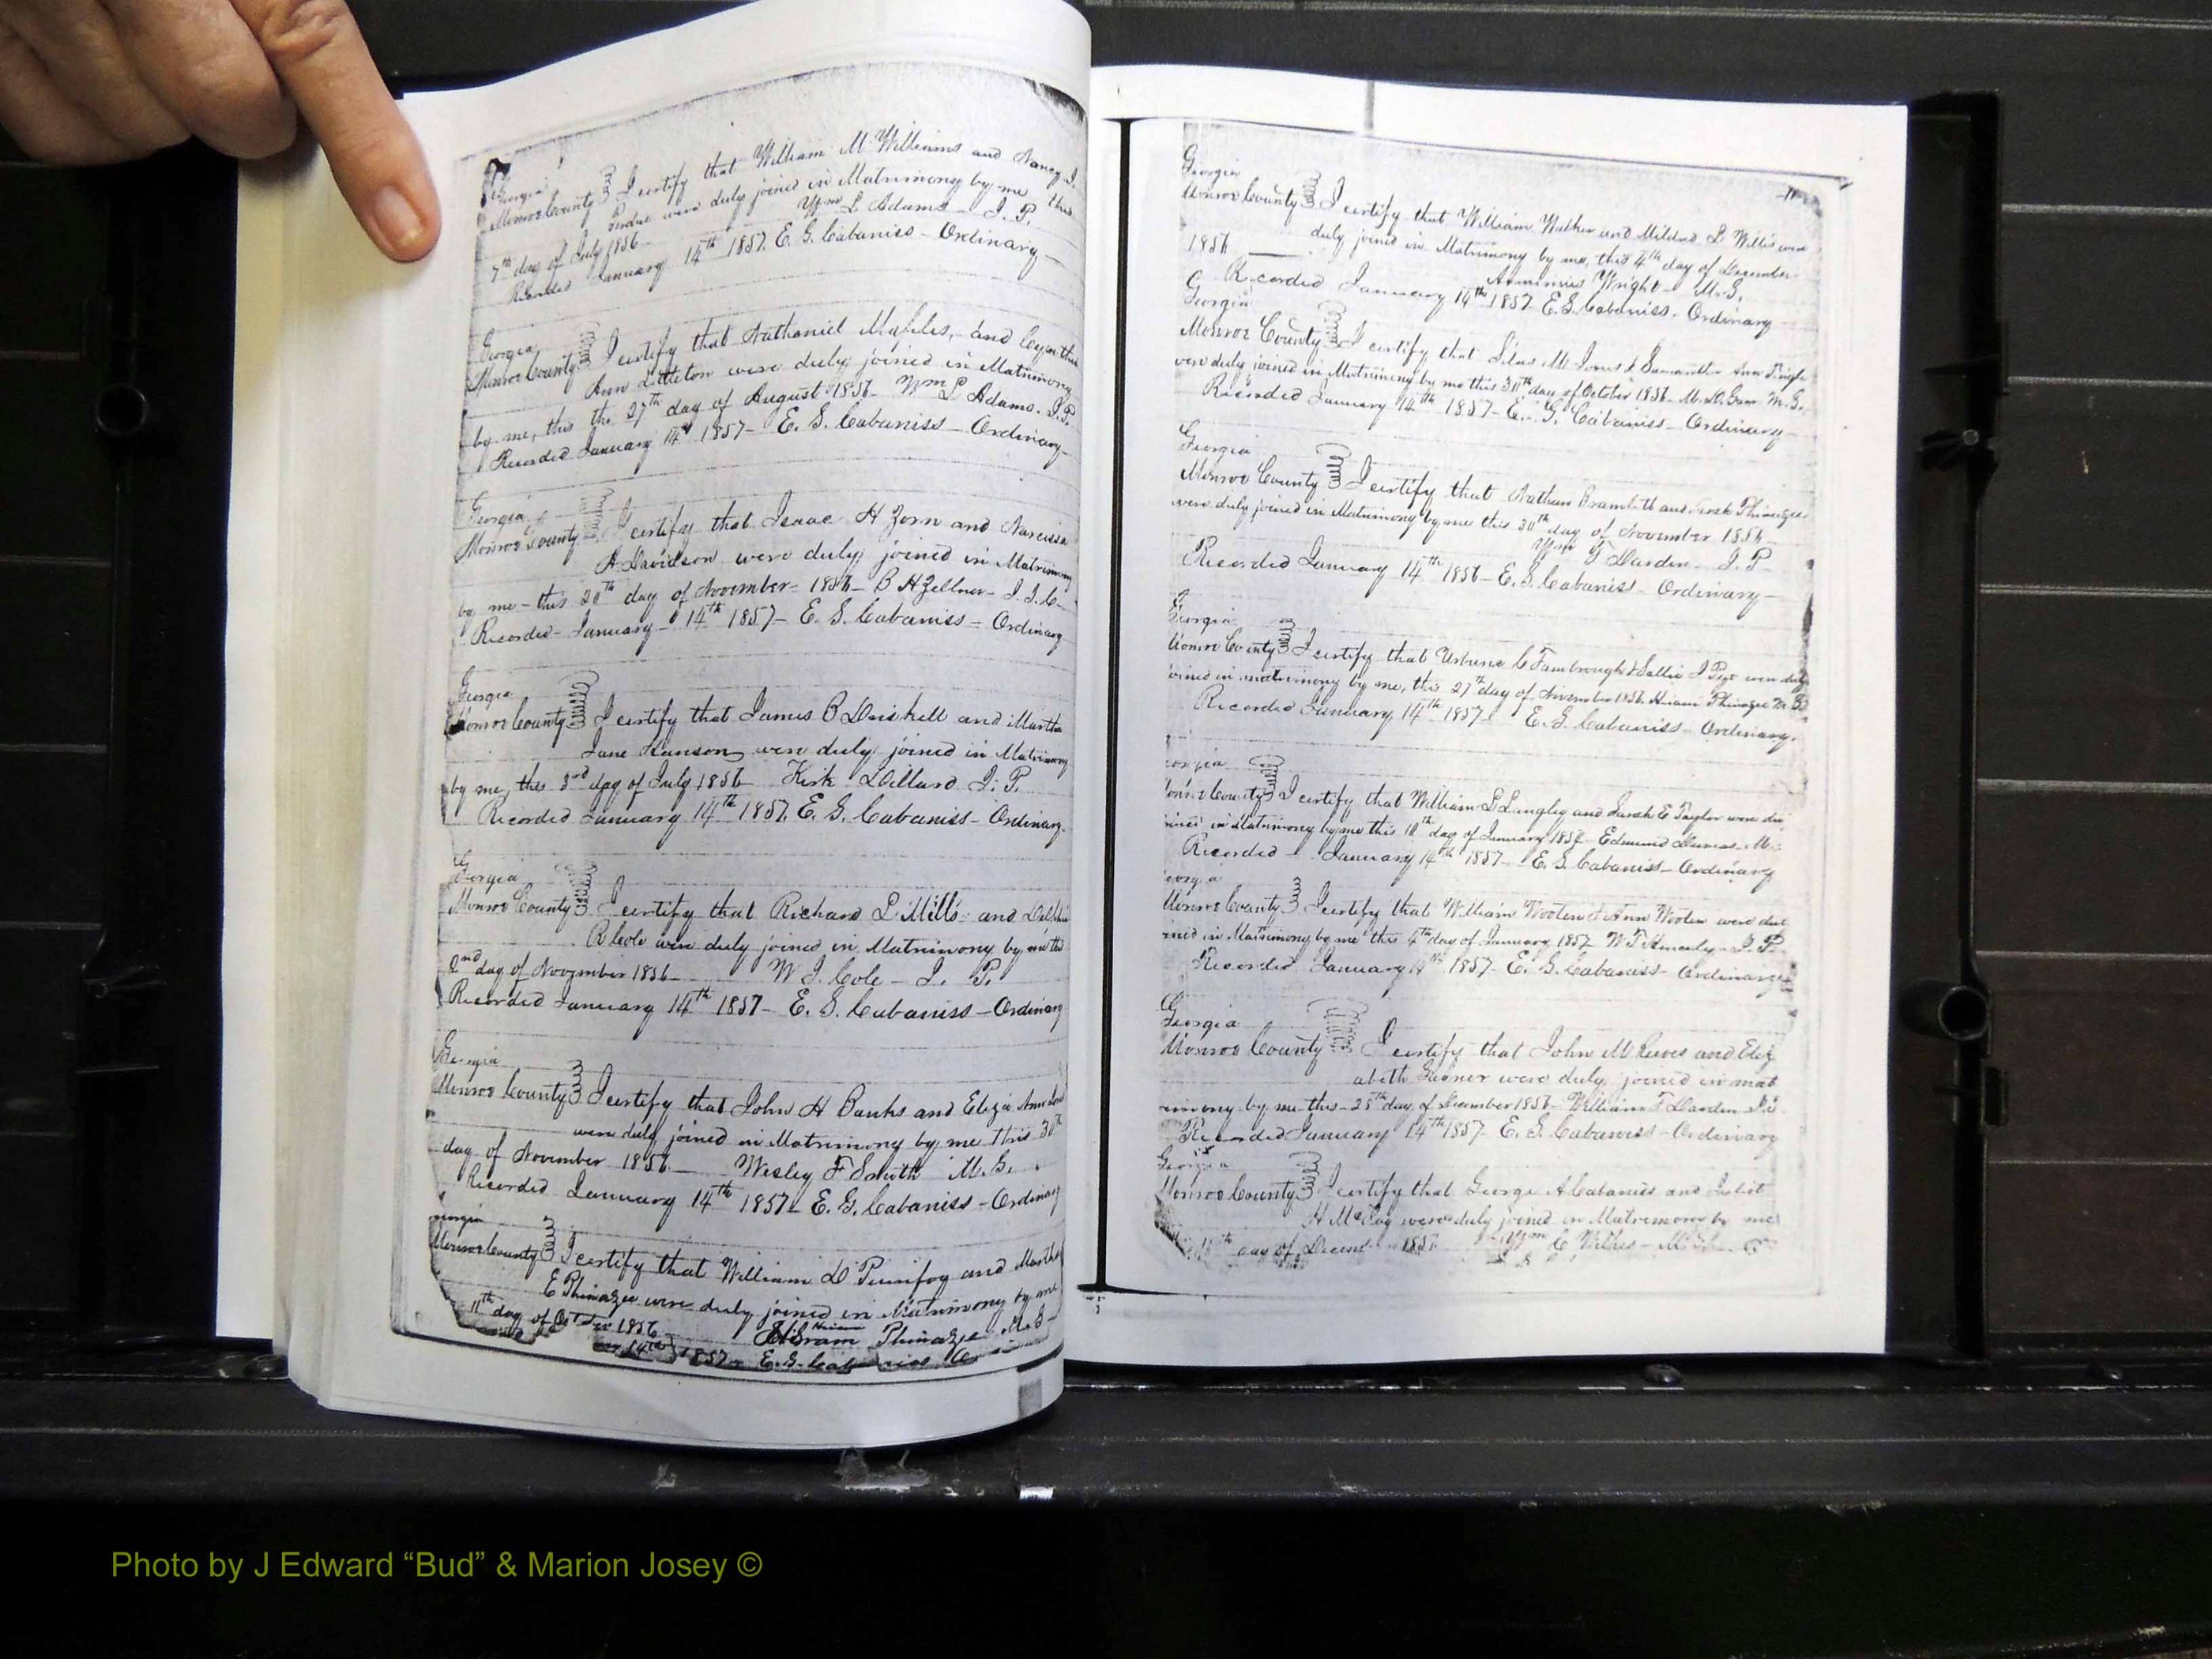 Georgia
Monroe County I certify that William M Williams and Nancy J.
Perdue were duly joined in Matrimony by me this
7th day of July 1856 Wm L Adams - J. P.
Recorded January 14th 1857. E. G. Cabaniss - Ordinary
Georgia
Monroe County I certify that Nathaniel and
Ann Littleton were duly joined in Matrimony
by me, this the 27th day of August 1856 - Wm L Adams. J. P.
Recorded January 14th 1857 - E. G. Cabaniss - Ordinary
Georgia
Monroe County I certify that Isaac H Zorn and Narcissa
A Davidson were duly joined in Matrimony
by me - this 20th day of November - 1856 - B H Zellner - J. I. C -
Recorded - January - 14th 1857 - E. G. Cabaniss - Ordinary
Georgia
Monroe County I certify that James B Driskell and Martha
Jane Hanson were duly joined in Matrimony
by me, this 3rd day of July 1856 Kirk Dillard J. P.
Recorded January 14th 1857. E. G. Cabaniss - Ordinary.
Georgia
Monroe County I certify that Richard L Mills and
R Cole were duly joined in Matrimony by me this
2nd day of November 1856 - W J. Cole - J. P.
Recorded January 14th 1857 - E. G. Cabaniss - Ordinary
Georgia
Monroe County I certify that John H Banks and Eliza Ann
were duly joined in Matrimony by me this 30th
day of November 1856 - Wesley F Smith M. G.
Recorded January 14th 1857 - E. G. Cabaniss - Ordinary
Georgia
Monroe County I certify that William D Purifoy and Martha
E Phinazee were duly joined in Matrimony by me
11th day of 1856 Hiram Phinazee M. G -
14th 1857 - E. G.
Georgia
Monroe County I certify that William Walker and Mildred L Willis were
duly joined in Matrimony by me, this 4th day of December
1856 Arminius Wright - M. G.
Recorded January 14th 1857 - E. G. Cabaniss - Ordinary
Georgia
Monroe County I certify that Silas M Jones & Samantha Ann
were duly joined in Matrimony by me this 30th day of October 1856 - M. G.
Recorded January 14th 1857 - E. G. Cabaniss - Ordinary -
Georgia
Monroe County I certify that Nathan Bramblett and Sarah Phinazee
were duly joined in Matrimony by me this 30th day of November 1856 -
Wm F Darden J. P -
Recorded January 14th 1856 - E. G. Cabaniss - Ordinary -
Georgia
Monroe County I certify that Urbane C Fambrough & Sallie J were duly
joined in matrimony by me, this 27th day of November 1856. Hiram Phinazee M. G
Recorded January 14th 1857 E. G. Cabaniss - Ordinary.
orgia
Monroe County I certify that William L Langley and Sarah E Taylor were
joined in Matrimony by me this day of January 1857 - Edmund
Recorded - January 14th 1857 - E. G. Cabaniss - Ordinary
eorgia
Monroe County I certify that William Wooten & Ann Wooten were
joined in Matrimony by me this 4th day of January 1857 W T J. P.
Recorded January 14th 1857 - E. G. Cabaniss - Ordinary
Georgia
Monroe County I certify that John M Reeves and Eliz
abeth were duly joined in mat
rimony by me this 25th day of December 1856 - William F Darden
Recorded January 14th 1857 - E. G. Cabaniss - Ordinary
Georgia
Monroe County I certify that George A Cabaniss and Juliet
H were duly joined in Matrimony by me
day of 185
Photo by J Edward “Bud” & Marion Josey ©